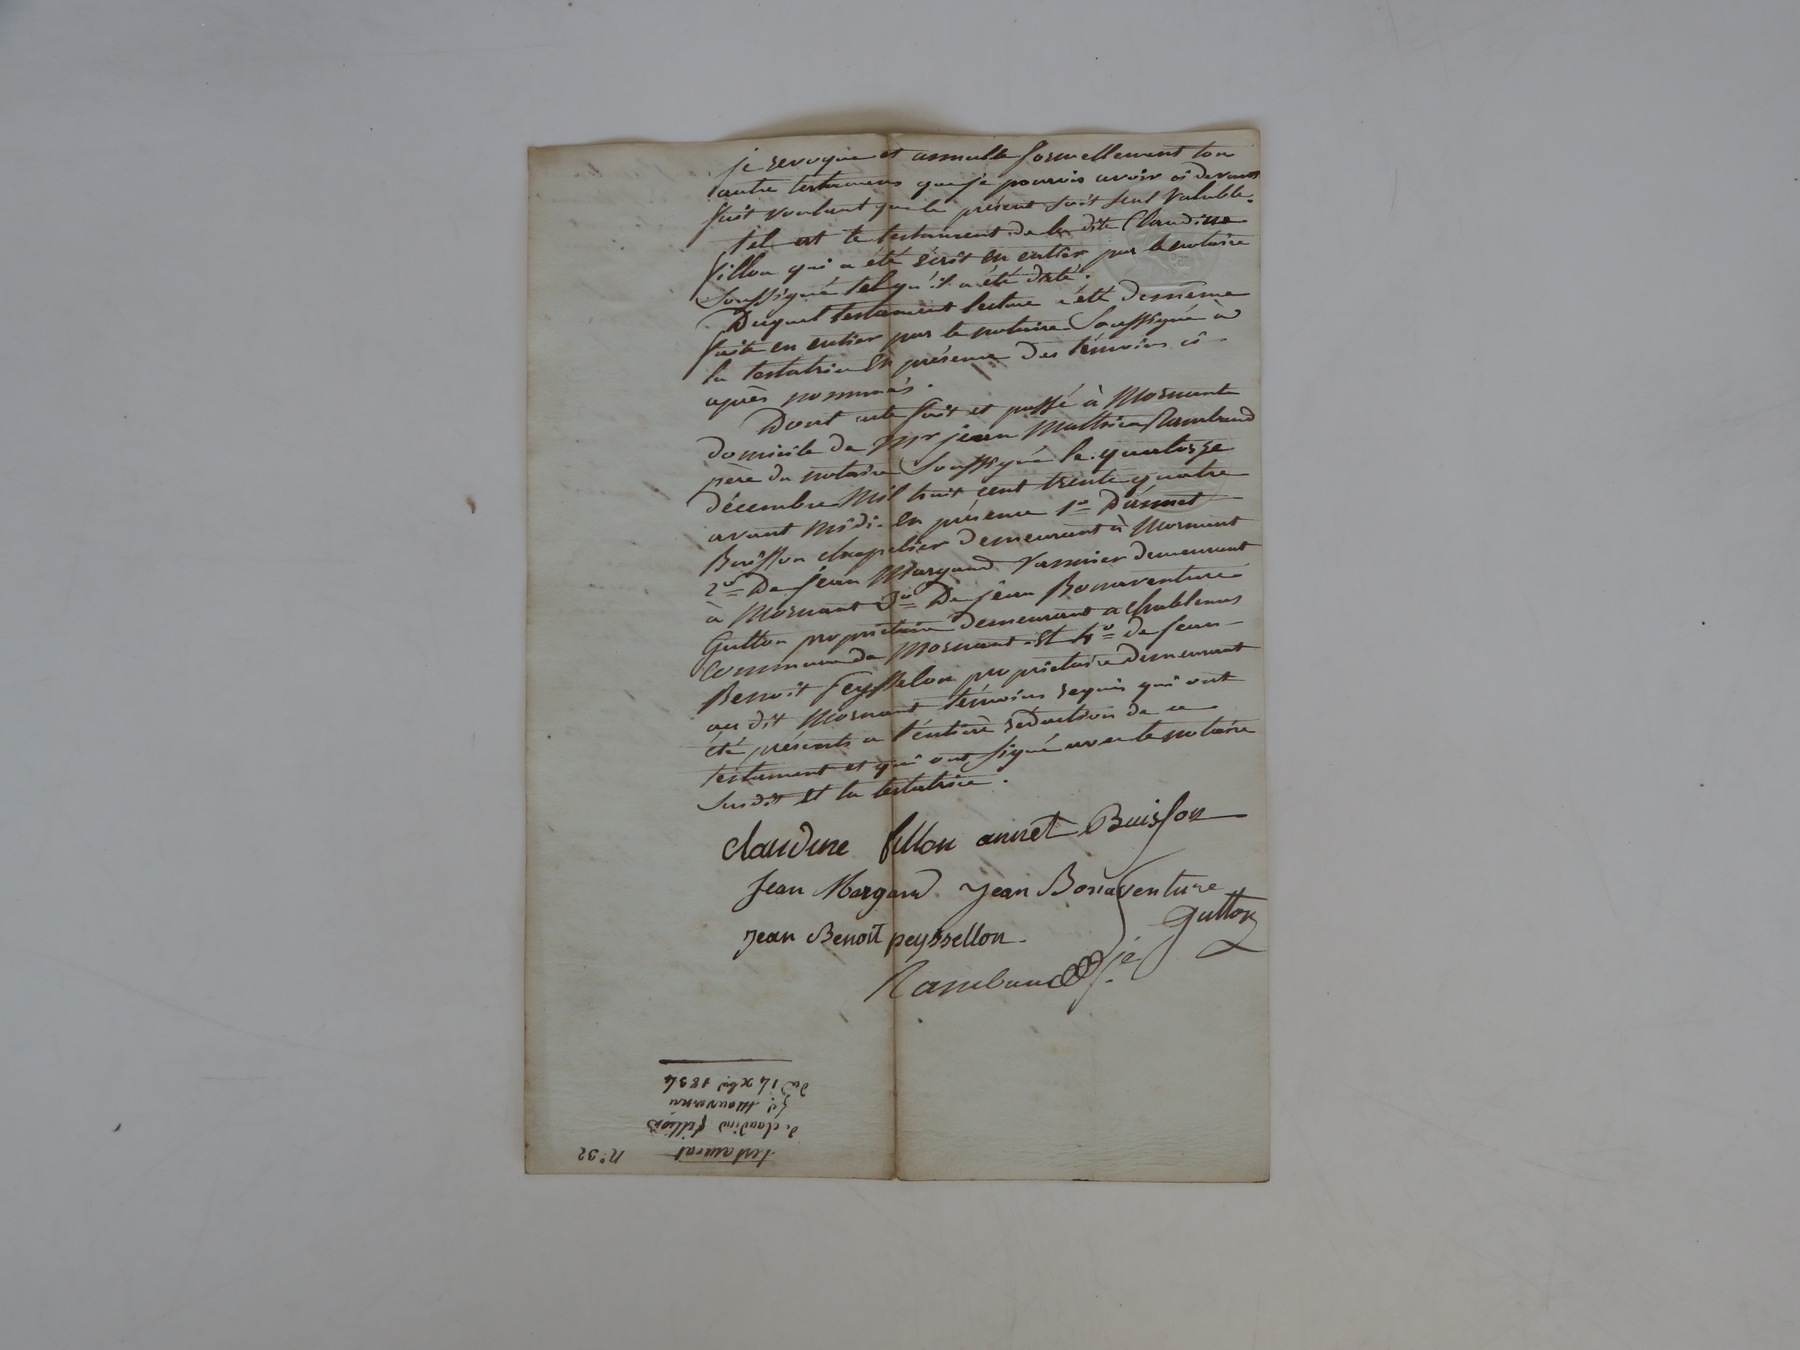 je revoque et annulle formellement tou
autre testamens que je pourois avoir ci devant
fait voulant que le présent soit seul valable.
tel est le testament de la dite Claudine
fillon qui a été écrit en entier par le notaire
soussigné tel qu'il a été dicté.
Duquel testament lecture a été de même
faite en entier par le notaire soussigné a
la testatrice en présence des témoins ci
après nommés.
Dont acte fait et passé à Mornant
domicile de Mr jean Mathieu Rambaud
père du notaire soussigné le quatorze
décembre Mil huit cent trente quatre
avant Midi. en présence 1o D'annet
Buisson chapelier demeurant à Mornant
2o De jean Margand vannier demeurant
à Mornant 3o De jean Bonaventure
Gutton propriétaire demeurant a Chablenas
commune de Mornant et 4o de jean
Benoit Peysselon propriétaire demeurant
au dit Mornant témoins requis qui ont
été présents a l'entière rédaction de ce
testament et qui ont signé avec le notaire
susdit et la testatrice.
claudine fillon annet Buisson
Jean Margand Jean Bonaventure
Gutton
Jean Benoit peyssellon.
Rambaud
n.o 32
testament
de claudine fillion
du 14 xbre 1834